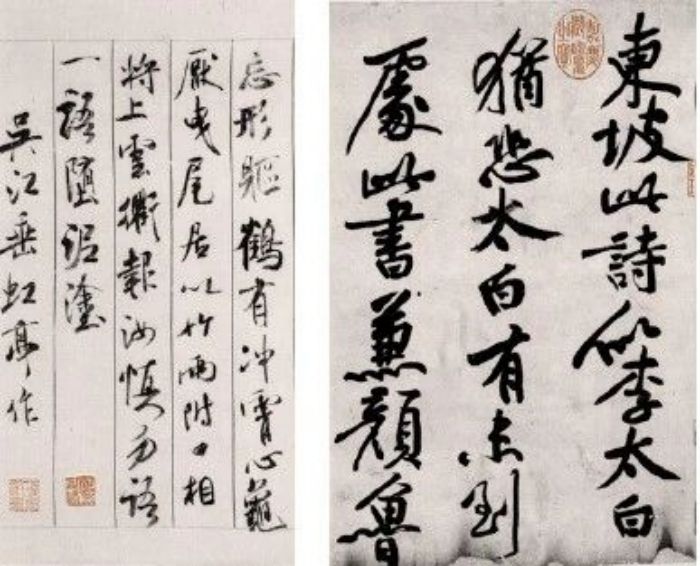 東坡此詩似李太白
猶恐太白有未到
處此書兼顏魯
忘形軀鶴有冲霄心龜
厭曳尾居以竹兩附口相
將上雲衢報汝慎勿語
一語墮泥塗
吳江垂虹亭作